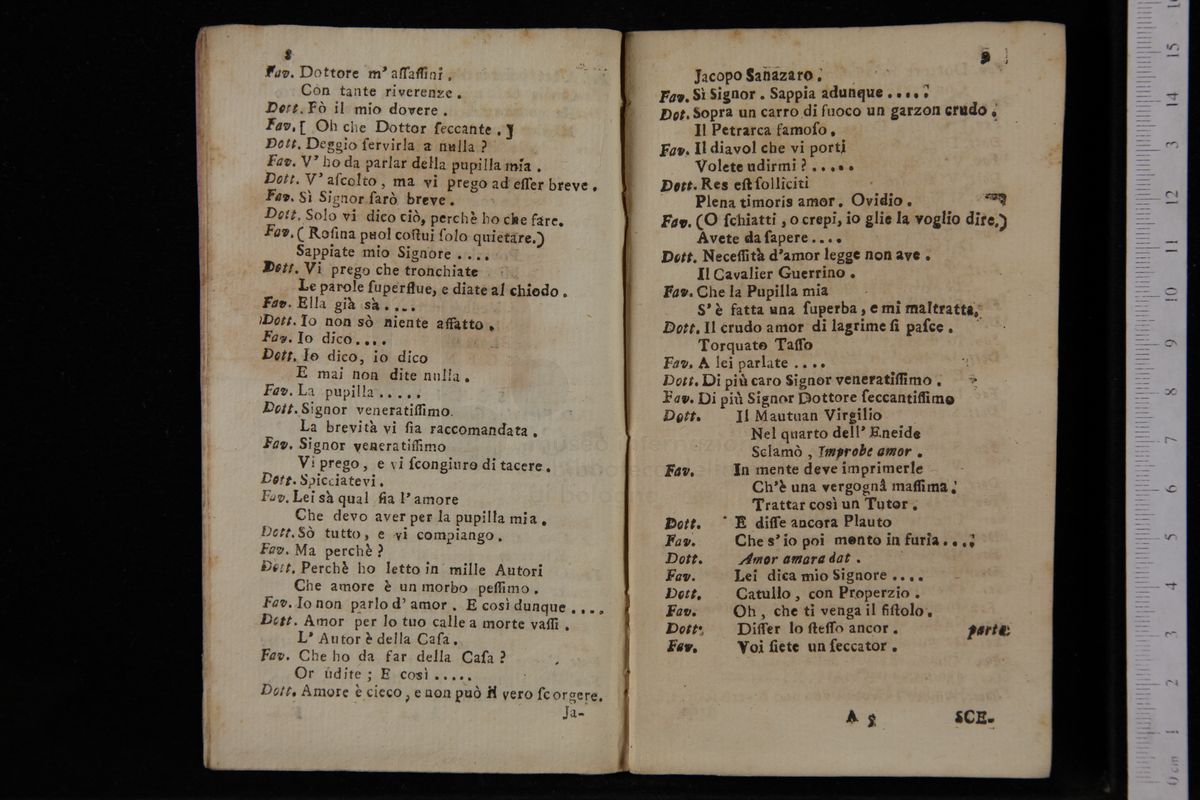 8
Fav. Dottore m' aſſaſſini.
Con tante riverenze.
Dott. Fò il mio dovere.
Fav. [ Oh che Dottor ſeccante. ]
Dott. Deggio ſervirla a nulla ?
Fav. V' ho da parlar della pupilla mia.
Dott. V' aſcolto, ma vi prego ad eſſer breve.
Fav. Sì Signor ſarò breve.
Dott. Solo vi dico ciò, perchè ho che fare.
Fav. ( Roſina puol coſtui ſolo quietare.)
Sappiate mio Signore ....
Dott. Vi prego che tronchiate
Le parole ſuperflue, e diate al chiodo.
Fav. Ella già sà ....
Dott. Io non sò niente affatto.
Fav. Io dico....
Dott. Io dico, io dico
E mai non dite nulla.
Fav. La pupilla .....
Dott. Signor veneratiſſimo.
La brevità vi ſia raccomandata.
Fav. Signor veneratiſſimo
Vi prego, e vi ſcongiuro di tacere.
Dott. Spicciatevi.
Fav. Lei sà qual ſia l' amore
Che devo aver per la pupilla mia.
Dott. Sò tutto, e vi compiango.
Fav. Ma perchè ?
Dott. Perchè ho letto in mille Autori
Che amore è un morbo peſſimo.
Fav. Io non parlo d' amor. E così dunque ....
Dott. Amor per lo tuo calle a morte vaſſi.
L' Autor è della Caſa.
Fav. Che ho da far della Caſa ?
Or udite ; E così .....
Dott. Amore è cieco, e non può il vero ſcorgere.
Ja-
9
Jacopo Sañazaro.
Fav. Sì Signor. Sappia adunque ....
Dot. Sopra un carro di fuoco un garzon crudo.
Il Petrarca famoſo.
Fav. Il diavol che vi porti
Volete udirmi ? .....
Dott. Res eſt ſolliciti
Plena timoris amor. Ovidio.
Fav. (O ſchiatti, o crepi, io glie la voglio dire.)
Avete da ſapere ....
Dott. Neceſſità d'amor legge non ave.
Il Cavalier Guerrino.
Fav. Che la Pupilla mia
S' è fatta una ſuperba, e mi maltratta.
Dott. Il crudo amor di lagrime ſi paſce.
Torquato Taſſo
Fav. A lei parlate ....
Dott. Di più caro Signor veneratiſſimo.
Fav. Di più Signor Dottore ſeccantiſſimo
Dott. Il Mantuan Virgilio
Nel quarto dell' Eneide
Sclamò, Improbe amor.
Fav. In mente deve imprimerle
Ch'è una vergogna maſſima.
Trattar così un Tutor.
Dott. E diſſe ancora Plauto
Fav. Che s' io poi monto in furia ....
Dott. Amor amara dat.
Fav. Lei dica mio Signore ....
Dott. Catullo, con Properzio.
Fav. Oh, che ti venga il fiſtolo.
Dott. Diſſer lo ſteſſo ancor. parte.
Fav. Voi ſiete un ſeccator.
A 5 SCE-